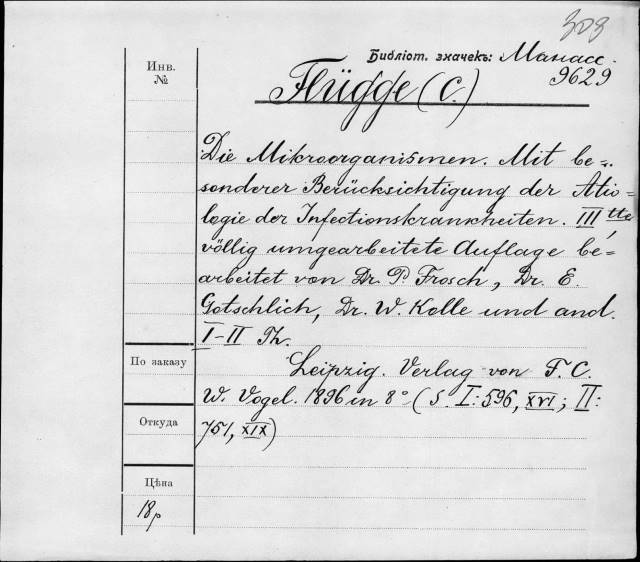 308
Библіот. значекъ: Манасс.
9629
Инв.
№
Flügge (C.)
Die Mikroorganismen. Mit be=
sonderer Berücksichtigung der Ätio-
logie der Infectionskrankheiten. III tte
völlig umgearbeitete Auflage be=
arbeitet von Dr. P. Frosch, Dr. E.
Gotschlich, Dr. W. Kolle und and.
I-II Th.
По заказу
Leipzig. Verlag von F. C.
W. Vogel. 1896 in 8° (S. I: 596, XVI; II:
Откуда
751, XIX)
Цѣна
18р